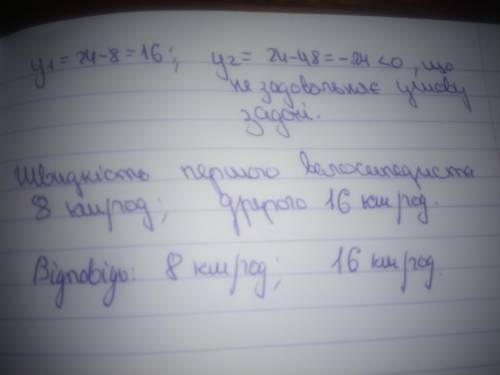 y₁ = 24-8 = 16; y₂ = 24-48 = -24 < 0, що
не задовольняє умову
задачі.
Швидкість першого велосипедиста
8 км/год; другого 16 км/год.
Відповідь: 8 км/год; 16 км/год.